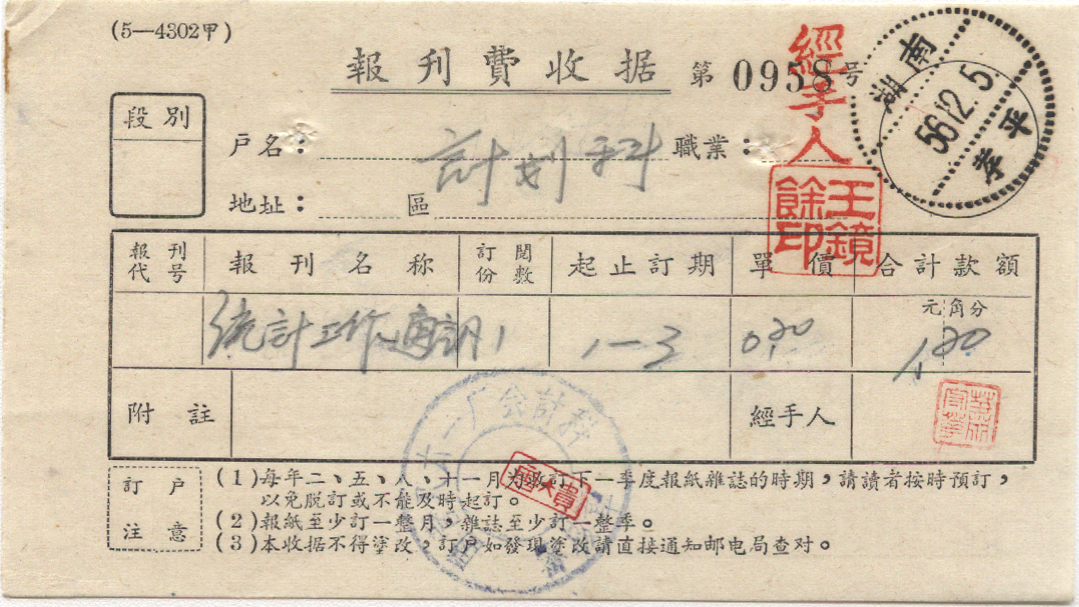 (5—4302甲)
報刊費收据 第0958号
經手人
湖南
56.12.5
平
王鏡餘印
段別
戶名： 計划科 職業：
地址： 區
報刊代号 報刊名称 訂閱份数 起止訂期 單價 合計款額
元角分
統計工作通訊 1 1—3 0.20 1.20
附註 經手人
訂戶注意
(1)每年二、五、八、十一月为收訂下一季度報紙雜誌的時期，請讀者按時預訂，
以免脫訂或不能及時起訂。
(2)報紙至少訂一整月，雜誌至少訂一整季。
(3)本收据不得塗改，訂戶如發現塗改請直接通知邮电局查对。
六一厂会計科